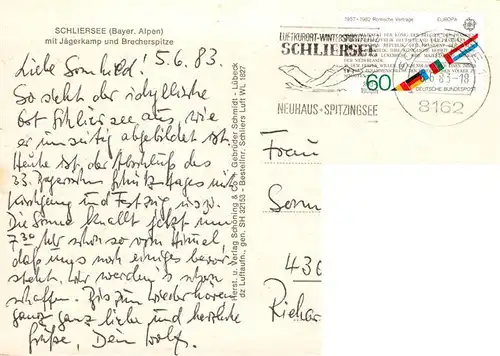 SCHLIERSEE (Bayer. Alpen)
mit Jägerkamp und Brecherspitze
5.6.83.
Liebe Sonnhild!
So sieht der idyllische
Ort Schliersee aus, wie
er umseitig abgebildet ist.
Heute ist der Abschluß des
33. Bayerischen Schützentages mit
und Festzug usw.
Die Sonne knallt jetzt um
7.30 Uhr schon so vom Himmel,
daß uns noch einiges bevor
steht. Wir werden's schon
schaffen. Bis zum Wiederhören
ganz ganz liebe und herzliche
Grüße, Dein Wolf.
Herst. u. Verlag Schöning & Co + Gebrüder Schmidt - Lübeck
dz Luftaufn., gen. SH 32/53 - Bestellnr. Schliers Luft WL 1827
LUFTKURORT-WINTERSPORTPLATZ
SCHLIERSEE
NEUHAUS-SPITZINGSEE
1957-1982 Römische Verträge
EUROPA
60
DEUTSCHE BUNDESPOST
83-18
8162
Frau
Sonn
436
Richar